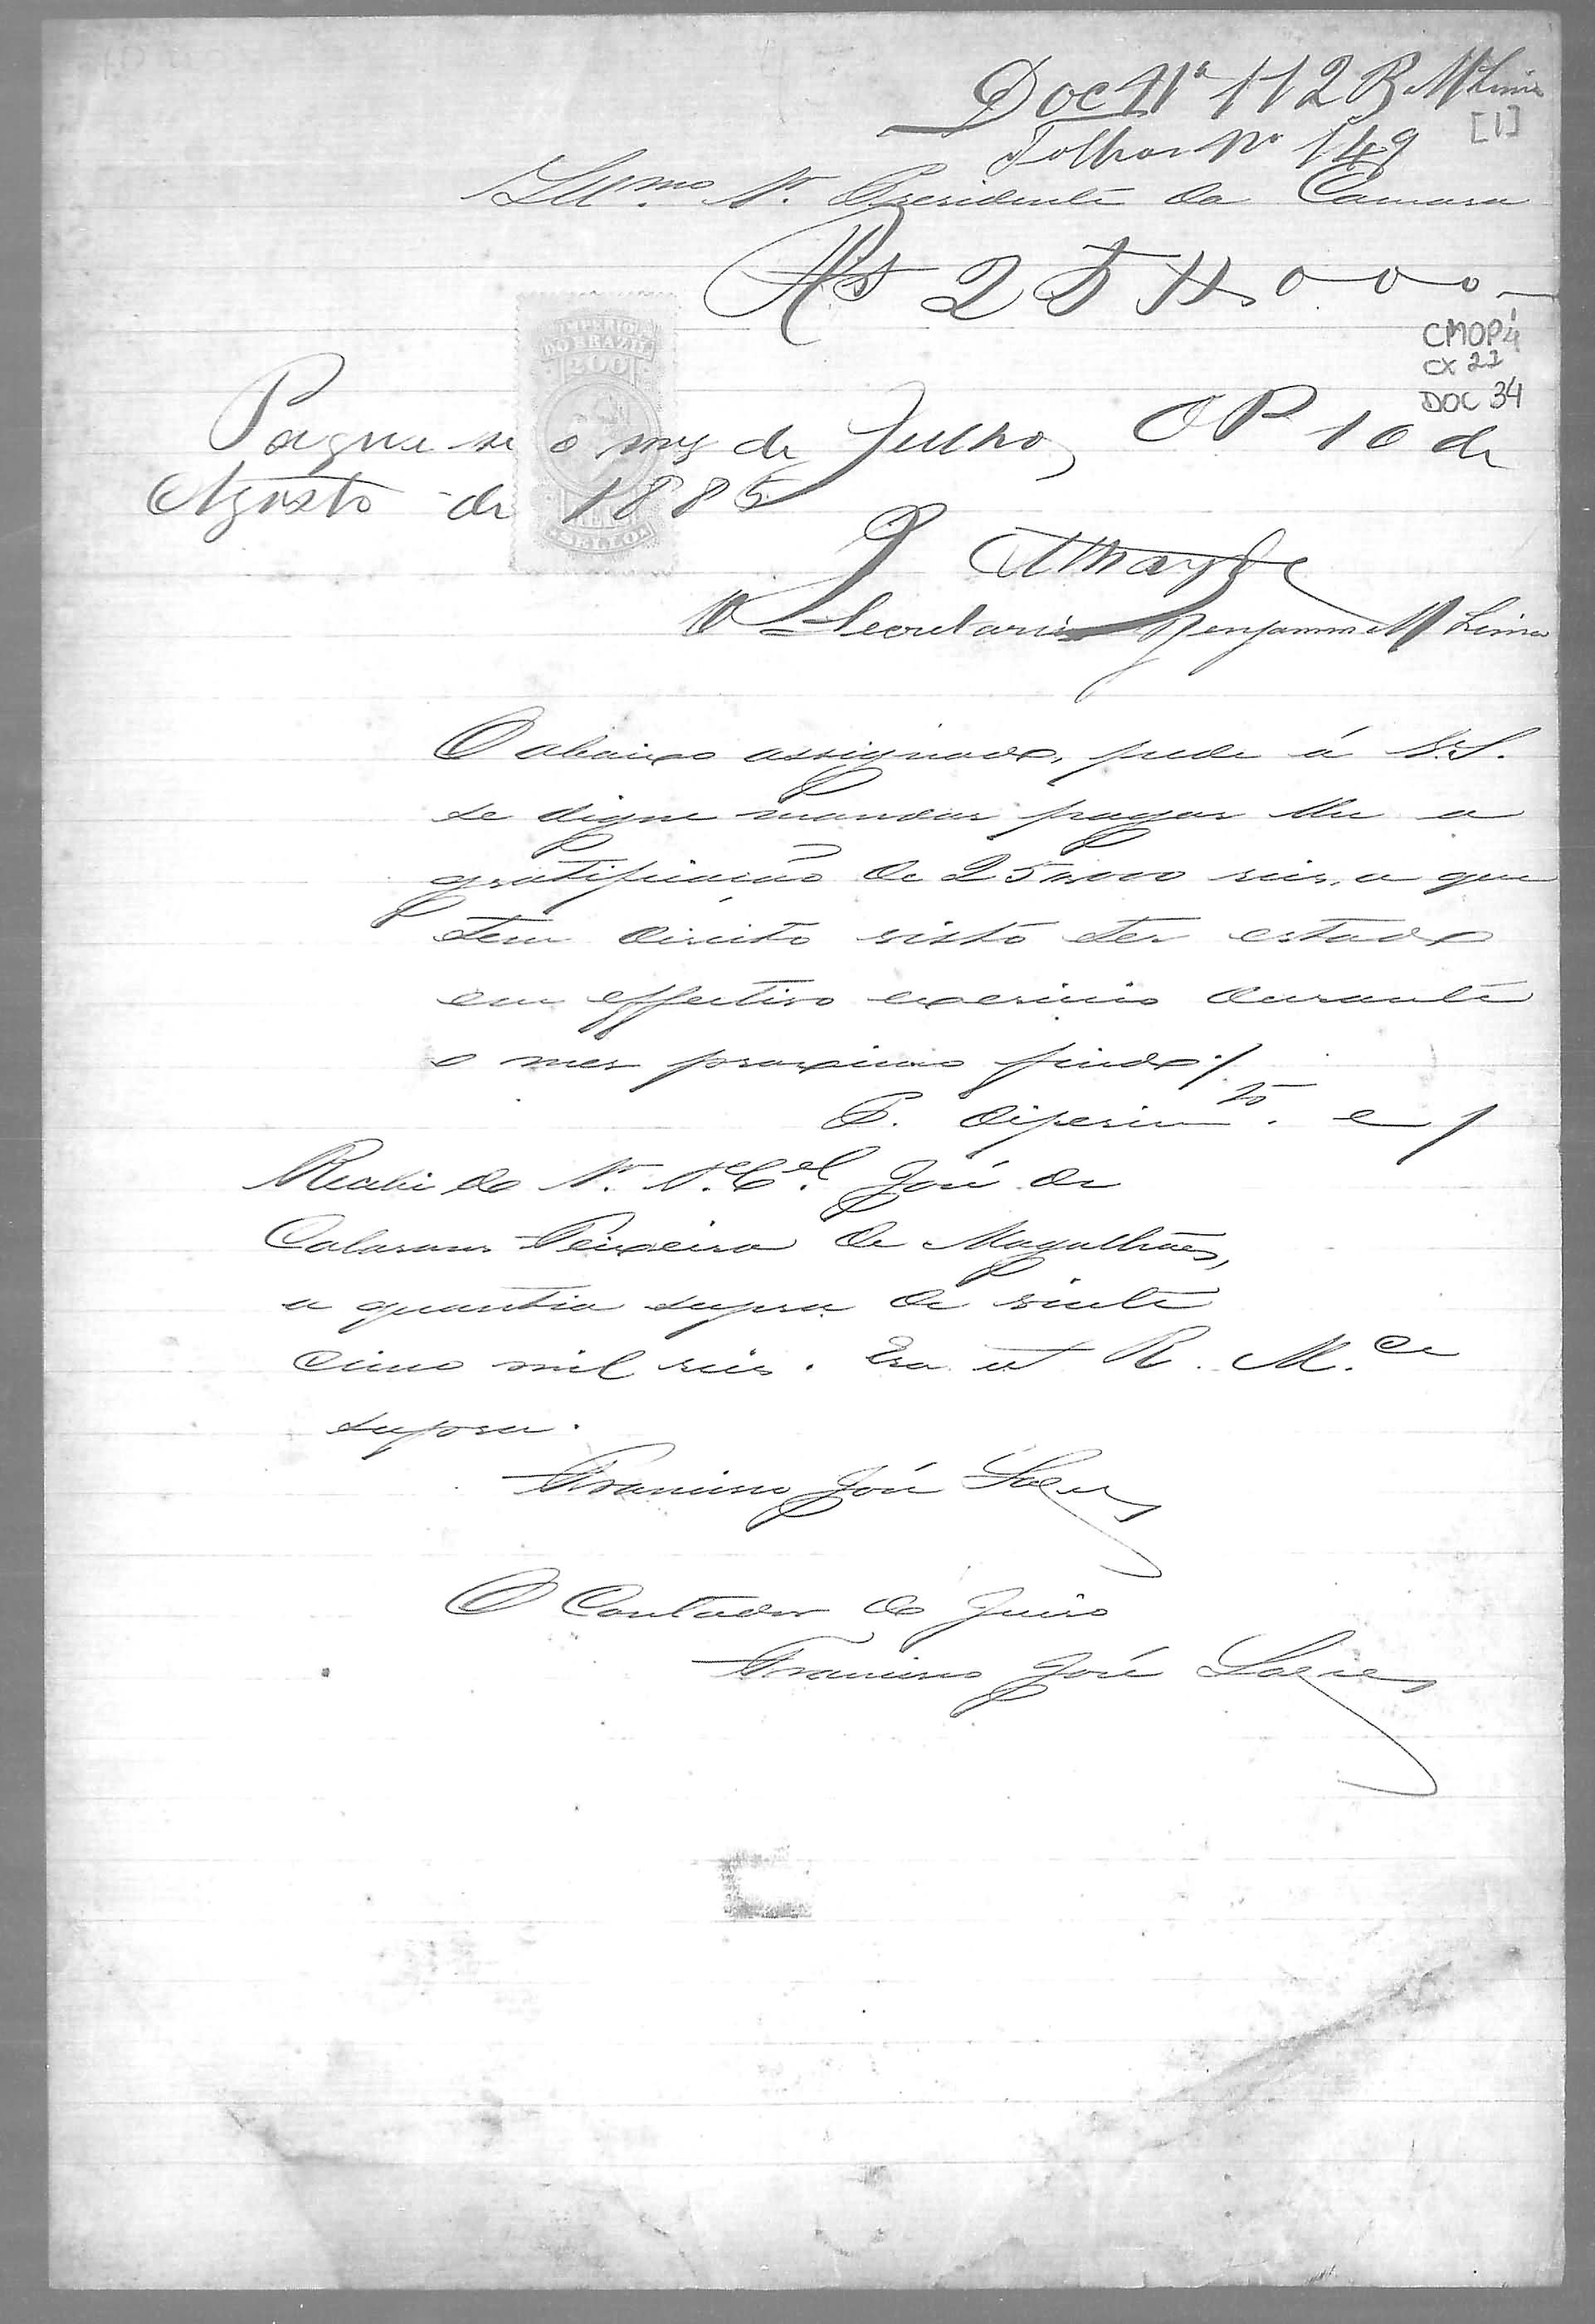 Doc Nº 112 B M Lima
[1]
Folhas Nº 149
Illmo. Sr. Presidente da Camara
Rs 25$000
CMOP
CX 22
DOC 34
IMPERIO
DO BRAZIL
200
SELLO
Pague se o mez de Julho, OP 10 de
Agosto de 1885
O Secretario Benjamim M Lima
O abaixo assignado, pede á V.S.
se digne mandar pagar lhe a
gratificacão de 25$000 reis, a que
tem direito visto ter estado
em effectivo exercicio durante
o mez proximo findo./
P. diferimto. e
Recebi do Sr. Te. Cel. José de
Calasans Teixeira de Magalhães,
a quantia supra de vinte
cinco mil reis. Era ut R. Mce
supra.
Francisco José
O Contador do Juiso
Francisco José